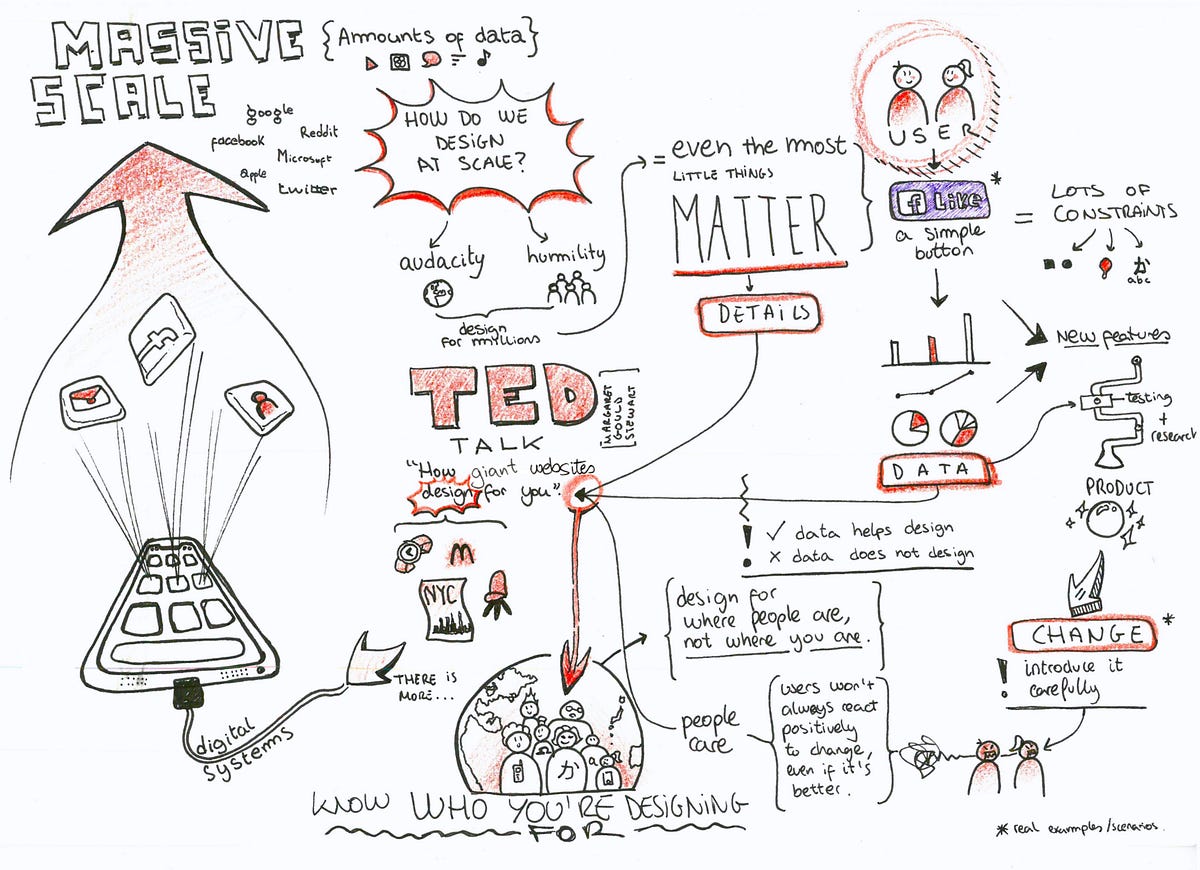 MASSIVE
SCALE
{Ammounts of data}
google
facebook
Reddit
Microsoft
apple
twitter
HOW DO WE
DESIGN
AT SCALE?
audacity
humility
design
for millions
= even the most
LITTLE THINGS
MATTER
DETAILS
USER
f Like *
a simple
button
= LOTS OF
CONSTRAINTS
か
abc
New features
testing
+
research
PRODUCT
DATA
! ✓ data helps design
x data does not design
CHANGE *
! introduce it
carefully
TED
TALK
[MARGARET
GOULD
STEWART]
"How giant websites
design for you".
NYC
THERE IS
MORE...
digital
systems
f
design for
where people are,
not where you are.
people
care
users won't
always react
positively
to change,
even if it's
better.
か
KNOW WHO YOU'RE DESIGNING
FOR
* real exammples/scenarios.